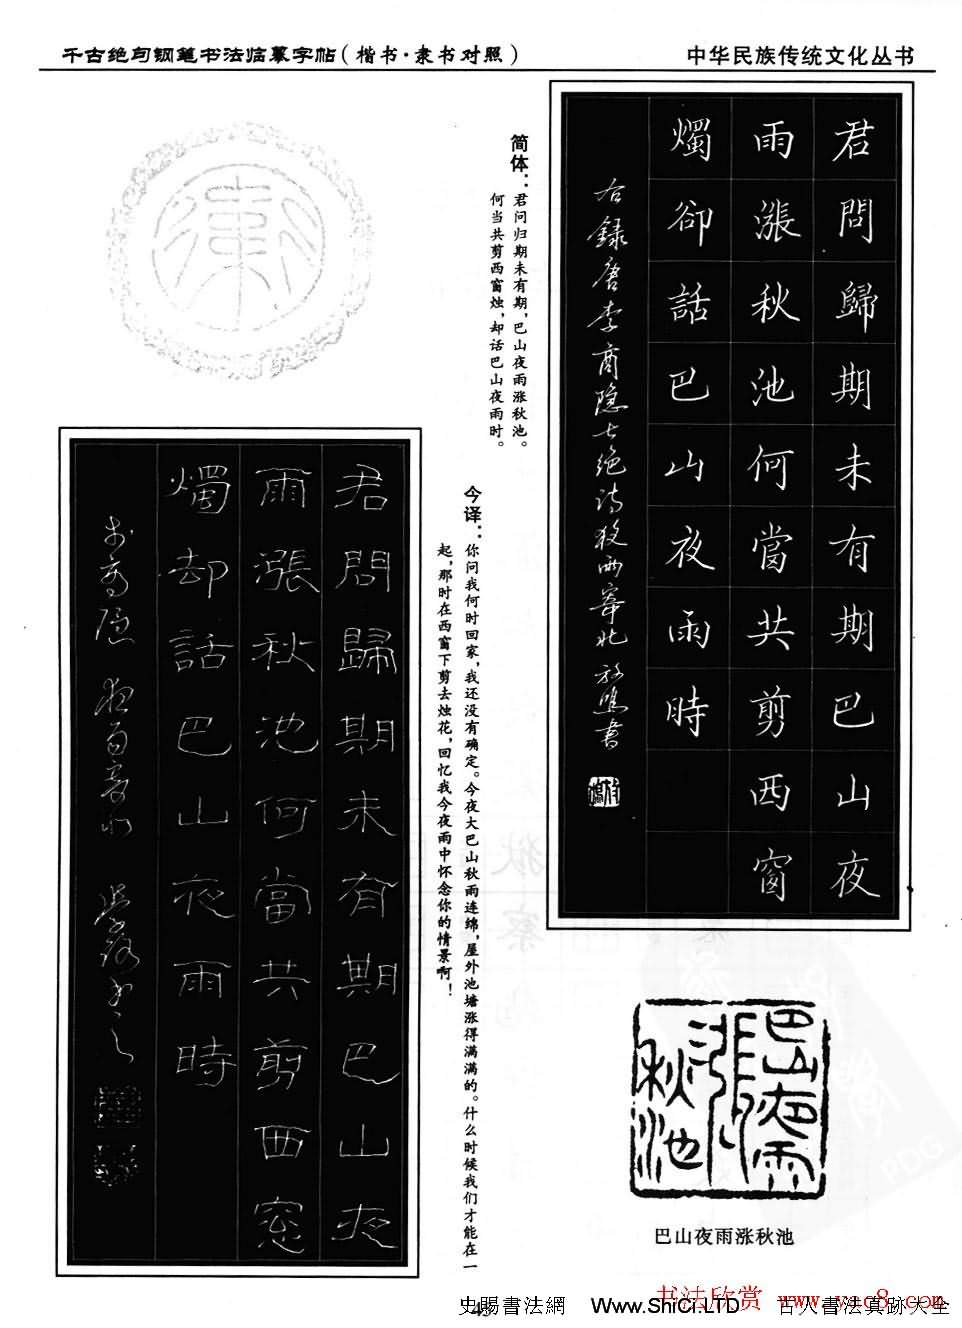 千古绝句钢笔书法临摹字帖（楷书·隶书对照）
中华民族传统文化丛书
君問歸期未有期巴山夜
雨漲秋池何當共剪西窗
燭卻話巴山夜雨時
右録唐李商隐七绝诗
简体：君问归期未有期，巴山夜雨涨秋池。
何当共剪西窗烛，却话巴山夜雨时。
今译：你问我何时回家，我还没有确定。今夜大巴山秋雨连绵，屋外池塘涨得满满的。什么时候我们才能在一
起，那时在西窗下剪去烛花，回忆我今夜雨中怀念你的情景啊！
君問歸期未有期巴山夜
雨漲秋池何當共剪西窓
燭却話巴山夜雨時
巴山夜雨
漲
秋池
巴山夜雨涨秋池
书法欣赏 www.yac8.com
史賜書法網 Www.ShiCi.LTD 古人書法真跡大全
PDG